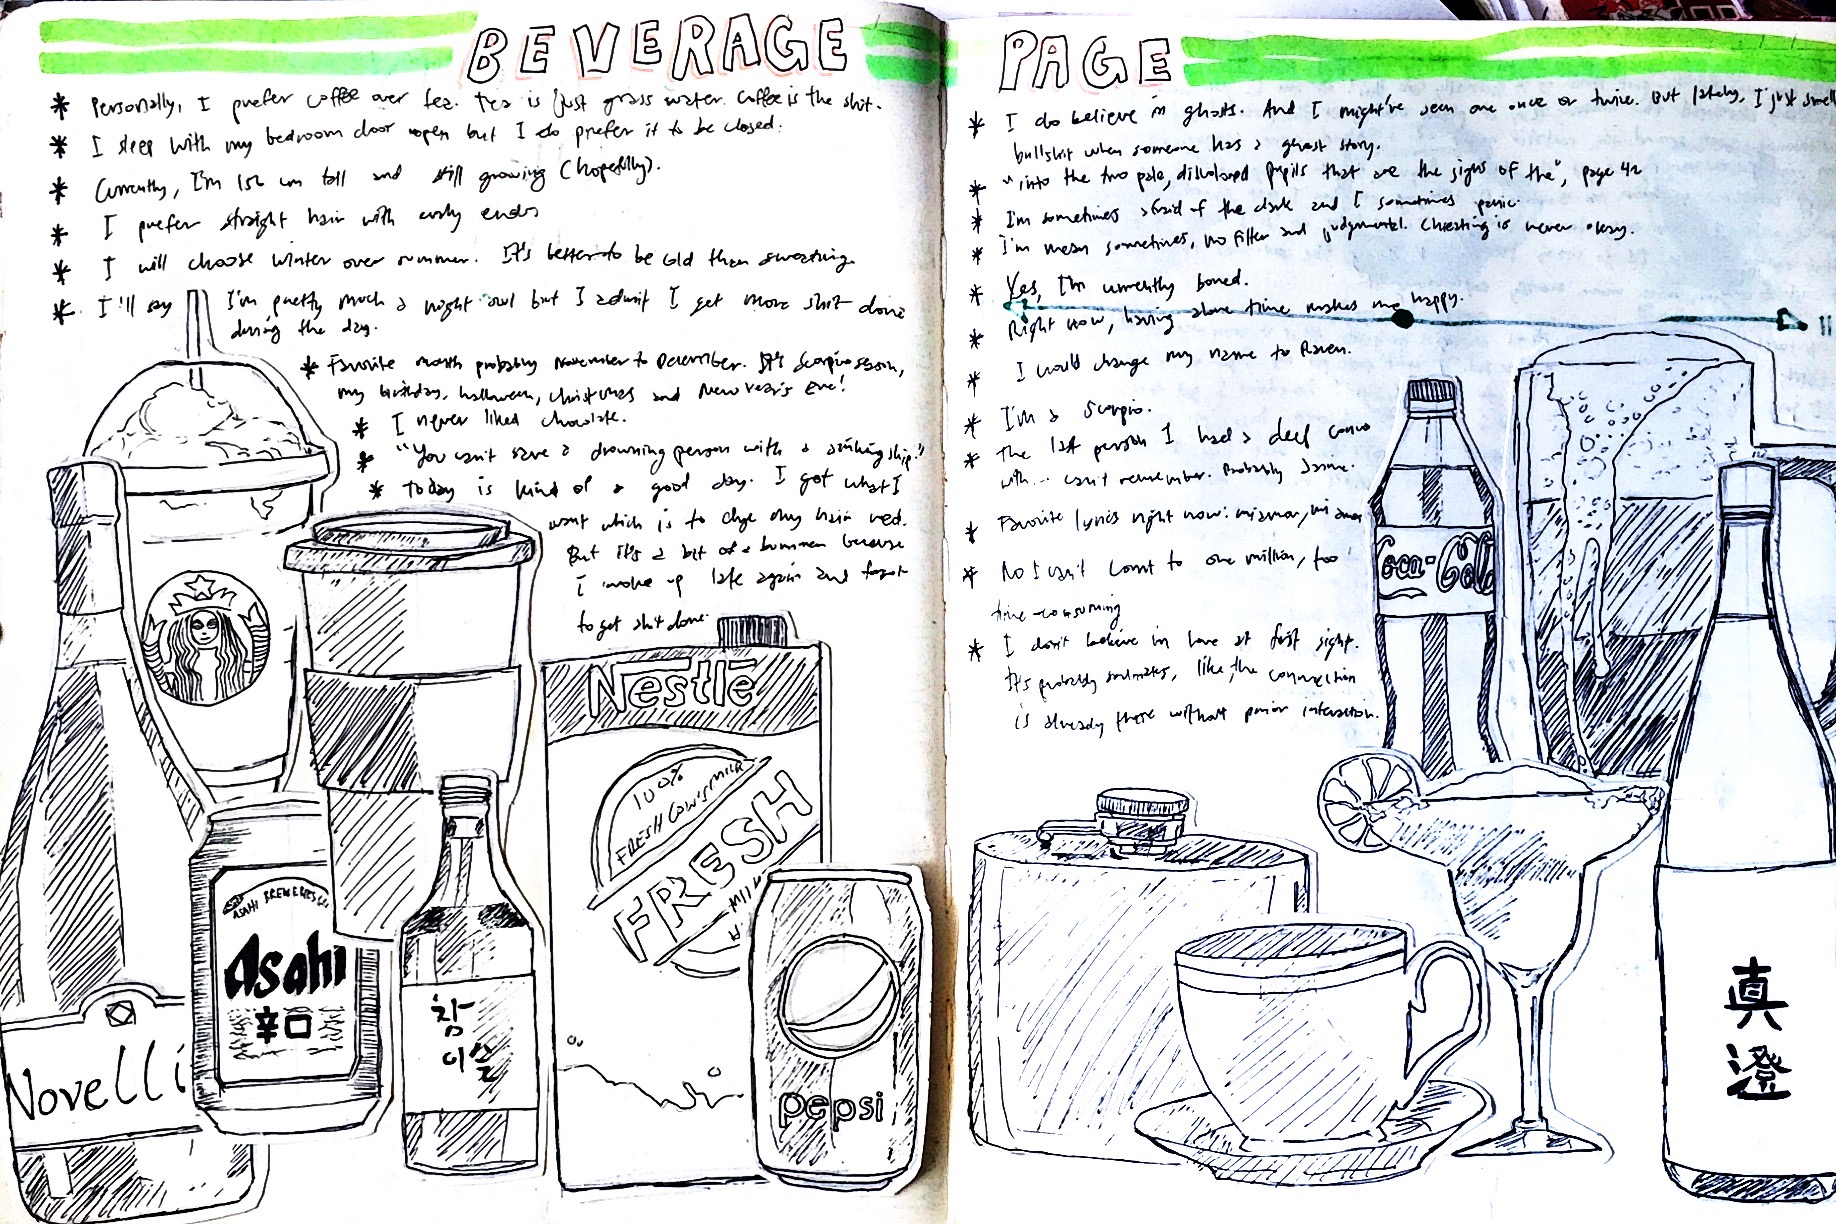 BEVERAGE PAGE
* Personally, I prefer coffee over tea. Tea is just grass water. Coffee is the shit.
* I sleep with my bedroom door open but I do prefer it to be closed.
* Currently, I'm 156 cm tall and still growing (hopefully).
* I prefer straight hair with curly ends
* I will choose winter over summer. It's better to be cold than sweating.
* I'll say I'm pretty much a night owl but I admit I get more shit done
during the day.
* Favorite month probably November to December. It's Scorpio season,
my birthday, halloween, christmas and New Year's Eve!
* I never liked chocolate.
* "You can't save a drowning person with a sinking ship."
* Today is kind of a good day. I got what I
want which is to dye my hair red.
But it's a bit of a bummer because
I woke up late again and forgot
to get shit done.
Nestlē
100%
FRESH COW'S MILK
FRESH
ASAHI BREWERIES
Asahi
辛口
참
이슬
Novelli
pepsi
* I do believe in ghosts. And I might've seen one once or twice. But lately, I just smell
bullshit when someone has a ghost story.
* "into the two pale, pupils that are the sighs of the", page 42
* I'm sometimes afraid of the dark and I sometimes panic.
* I'm mean sometimes, no filter and judgmental. Cheating is never okay.
* Yes, I'm currently bored.
* Right now, having alone time makes me happy.
* I would change my name to Raven.
* I'm a Scorpio.
* The last person I had a deep convo
with... can't remember. Probably
* Favorite lyrics right now:
* No I can't count to one million, too
time-consuming
* I don't believe in love at first sight.
It's probably soulmates, like, the connection
is already there without prior interaction.
Coca-Cola
真
澄